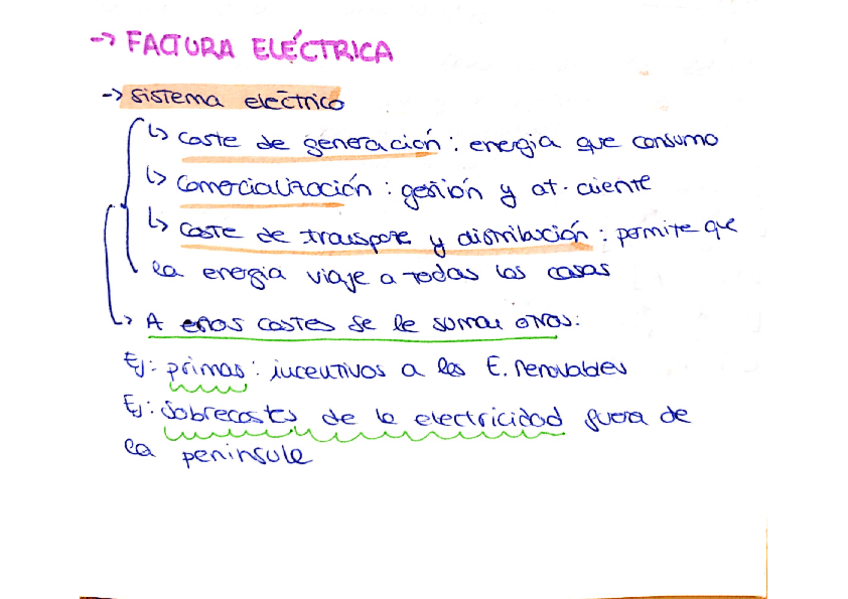 -> FACTURA ELÉCTRICA
-> Sistema eléctrico
↳ Coste de generación : energia que consumo
↳ Comercialización : gestión y at. cliente
↳ Coste de transporte y distribución : permite que
la energia viaje a todas las casas
↳ A estos costes se le suman otros:
Ej: primas : incentivos a las E. Renovables
Ej: Sobrecostes de la electricidad fuera de
la peninsula